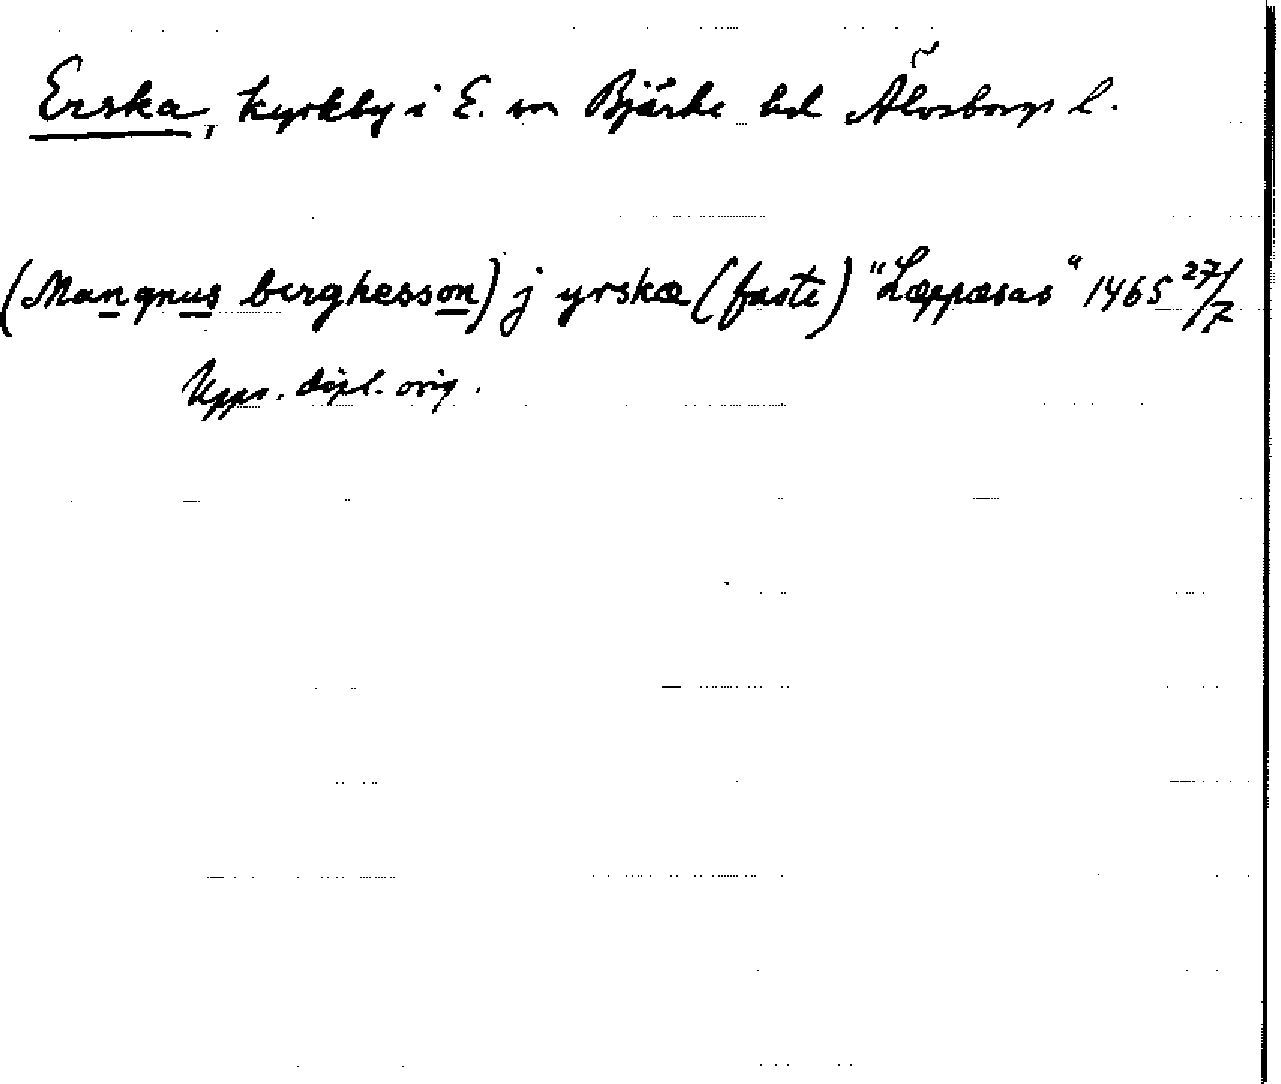 Erska, kyrkby i E. sn Bjärke hd Älvsborgs l.
(Mangnus berghesson) j yrskæ (faste) "Læppæsas" 1465 27/7
Upps. dipl. orig.